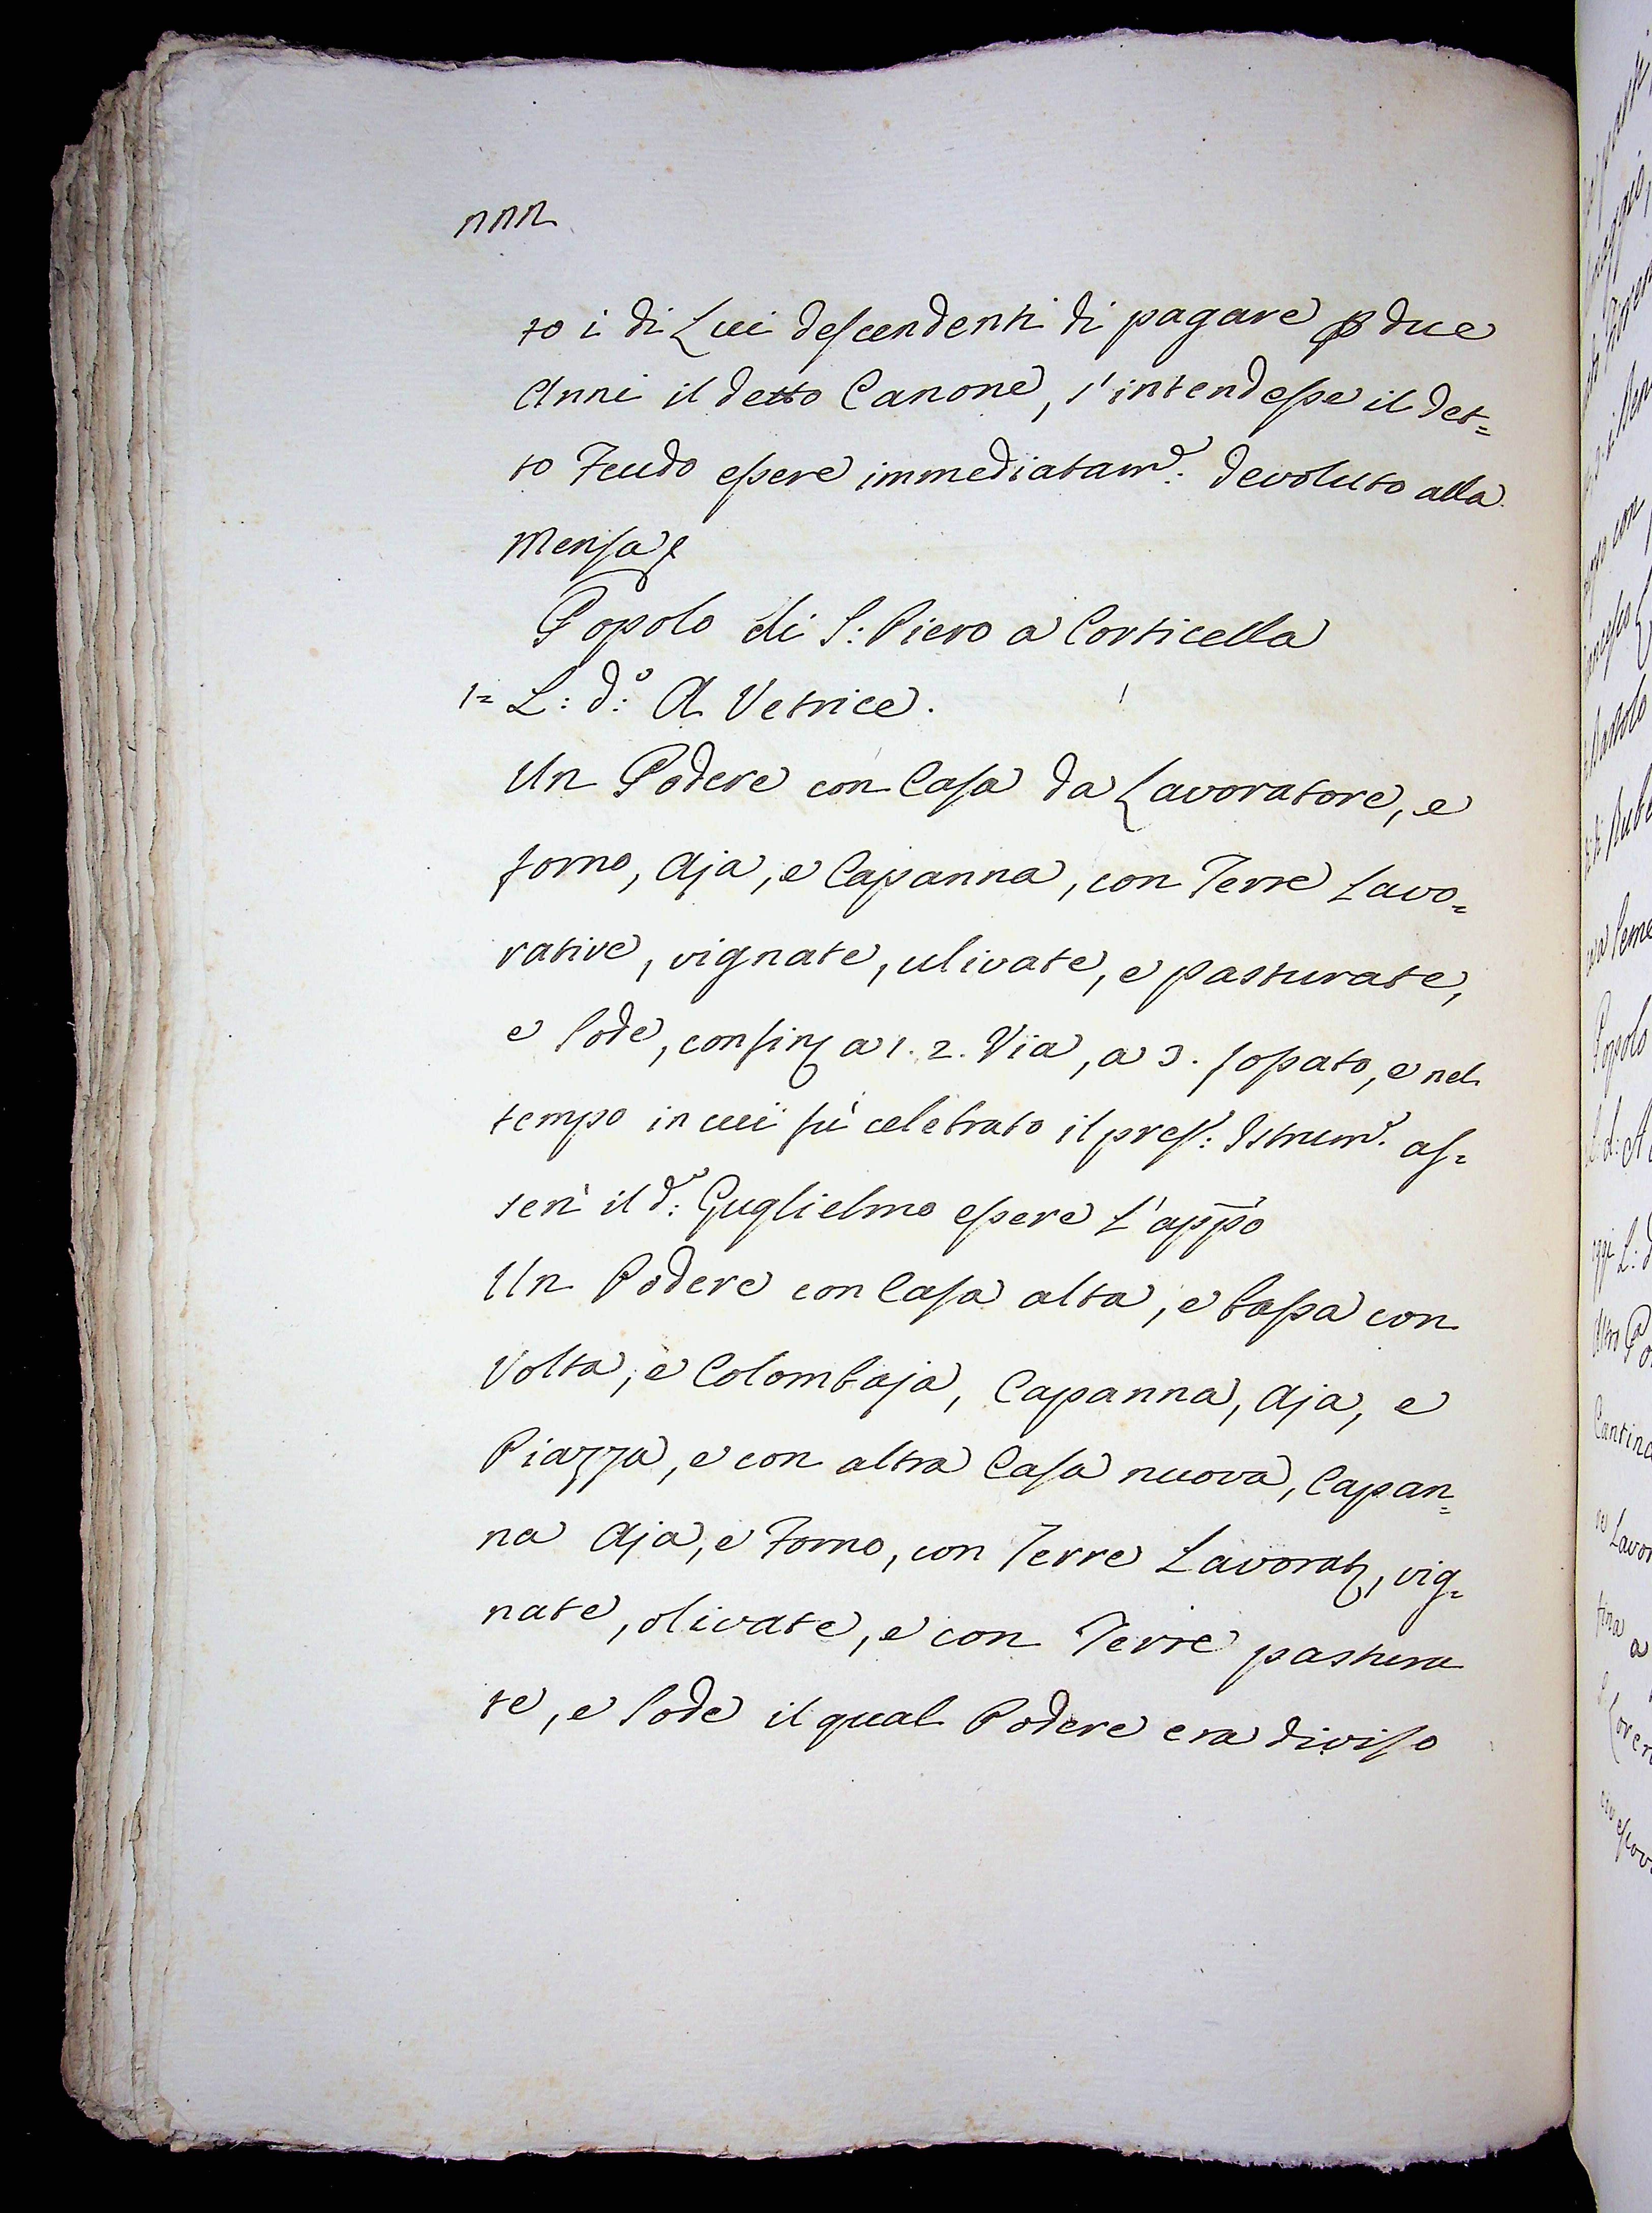 nnn
to i di Lui descendenti di pagare p due
Anni il detto Canone, s'intendesse il det=
to Feudo essere immediatam.e: devoluto alla
Mensa
Popolo di S: Piero a Corticella
1= L: d:o A Vetrice.
Un Podere con Casa da Lavoratore, e
forno, Aja, e Capanna, con Terre Lavo=
rative, vignate, ulivate, e pasturate,
e sode, confin a 1. 2. Via, a 3. fossato, e nel
tempo in cui fù celebrato il pres.e: Istrum.o as=
serì il d:o Guglielmo essere l'appo
Un Podere con Casa alta, e bassa con
Volta, e Colombaja, Capanna, Aja, e
Piazza, e con altra Casa nuova, Capan=
na Aja, e Forno, con Terre Lavorat, vig=
nate, olivate, e con Terre pastura
te, e sode il qual Podere era diviso